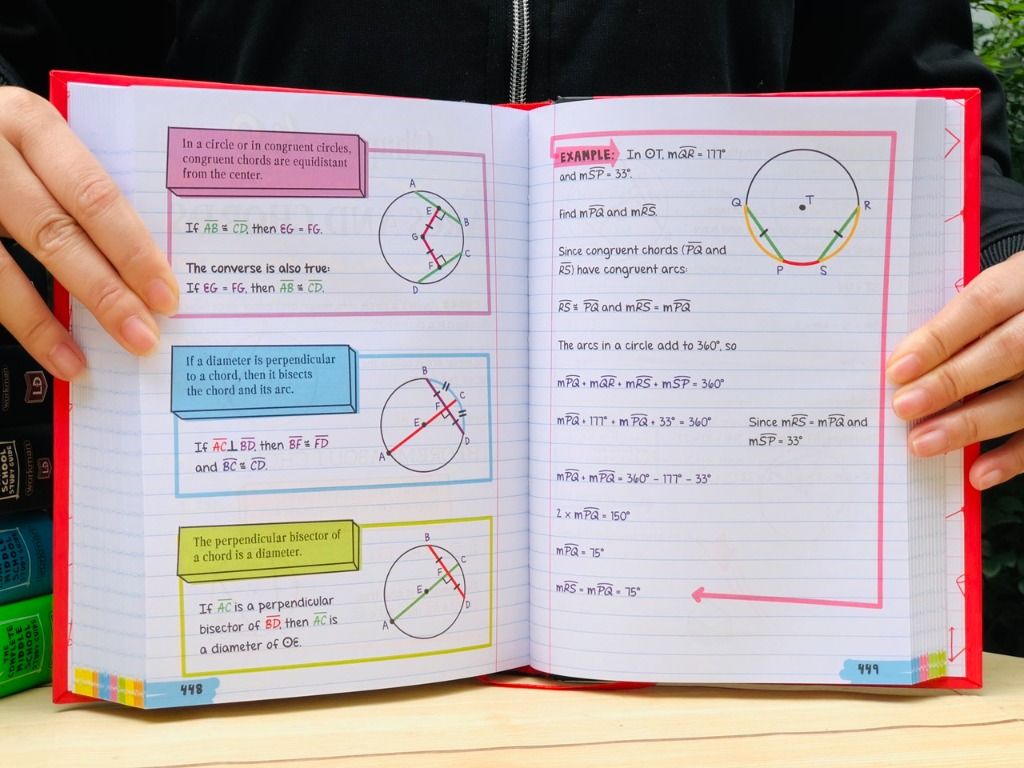 In a circle or in congruent circles,
congruent chords are equidistant
from the center.
If A͞B ≅ C͞D, then EG = FG.
The converse is also true:
If EG = FG, then A͞B ≅ C͞D.
A
E
B
G
C
F
D
If a diameter is perpendicular
to a chord, then it bisects
the chord and its arc.
If A͞C⊥B͞D, then B͞F ≅ F͞D
and B͡C ≅ C͡D.
B
C
F
E
D
A
The perpendicular bisector of
a chord is a diameter.
If A͞C is a perpendicular
bisector of B͞D, then A͞C is
a diameter of ⊙E.
B
C
F
E
D
A
448
EXAMPLE: In ⊙T, mQ͡R = 177°
and mS͡P = 33°.
Find mP͡Q and mR͡S.
Since congruent chords (P͞Q and
R͞S) have congruent arcs:
R͡S ≅ P͡Q and mR͡S = mP͡Q
The arcs in a circle add to 360°, so
mP͡Q + mQ͡R + mR͡S + mS͡P = 360°
mP͡Q + 177° + mP͡Q + 33° = 360°
Since mR͡S = mP͡Q and
mS͡P = 33°
mP͡Q + mP͡Q = 360° - 177° - 33°
2 × mP͡Q = 150°
mP͡Q = 75°
mR͡S = mP͡Q = 75°
Q
T
R
P
S
449
workman
SCHOOL
STUDY GUIDE
workman
MIDDLE
SCHOOL
THE
COMPLETE
MIDDLE
SCHOOL
STUDY GUIDE